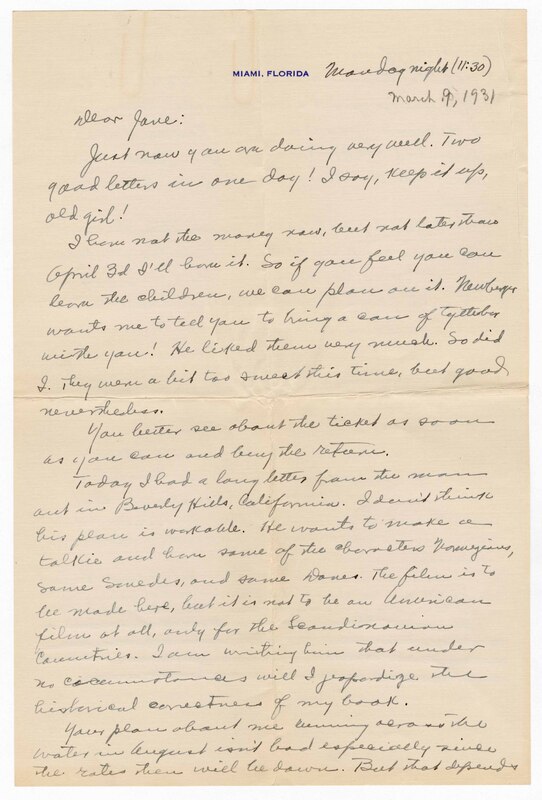 MIAMI, FLORIDA Monday night (11:30)
March 9, 1931
Dear Jane:
Just now you are doing very well. Two
good letters in one day! I say, keep it up,
old girl!
I have not the money now, but not later than
April 3d I'll have it. So if you feel you can
leave the children, we can plan on it. Newberger
wants me to tell you to bring a can of tyttebær
with you! He liked them very much. So did
I. They were a bit too sweet this time, but good
nevertheless.
You better see about the ticket as soon
as you can and buy the return.
Today I had a long letter from the man
out in Beverly Hills, California. I don't think
his plan is workable. He wants to make a
talkie and have some of the characters Norwegians,
some Swedes, and some Danes. The film is to
be made here, but it is not to be an American
film at all, only for the Scandinavian
Countries. I am writing him that under
no circumstances will I jeopardize the
historical correctness of my book.
Your plan about me coming across the
water in August isn't bad especially since
the rates then will be down. But that depends